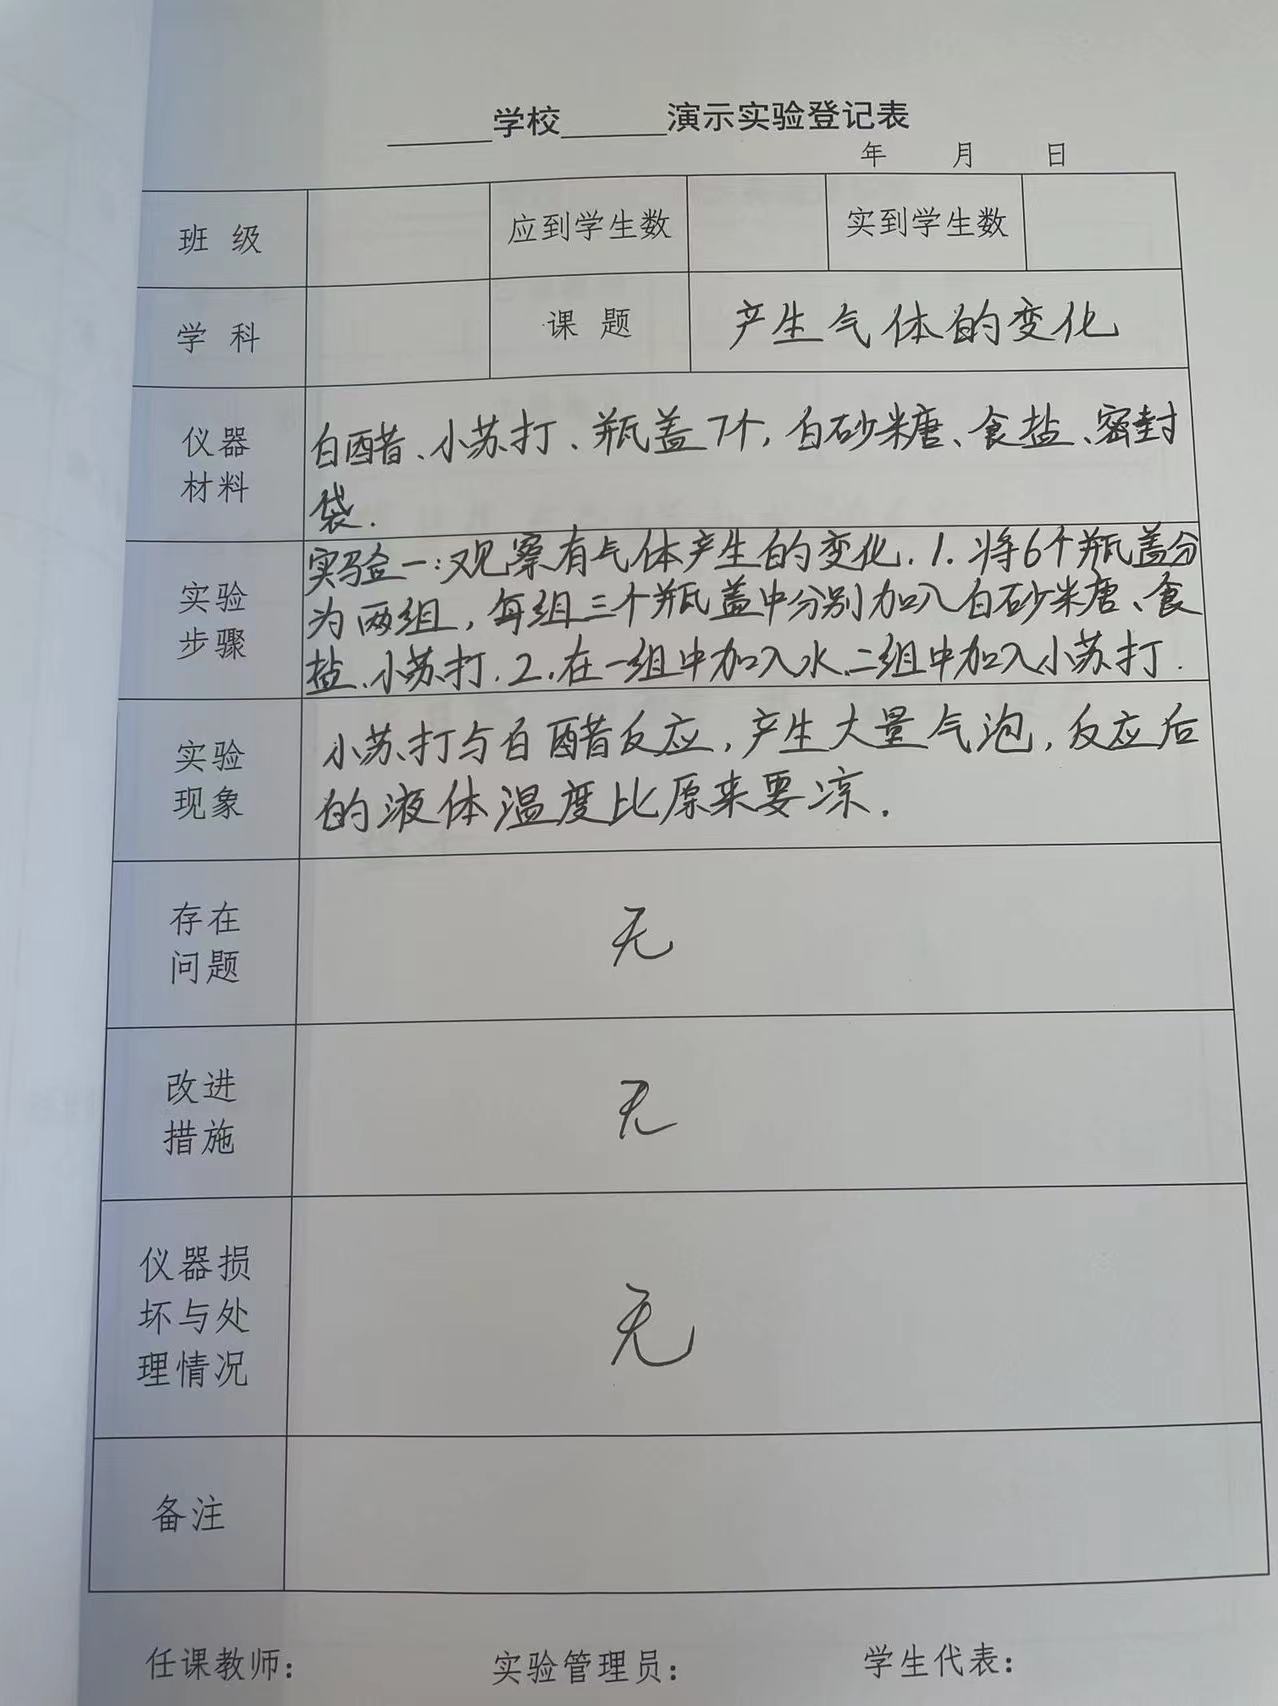 ______学校______演示实验登记表
年 月 日
班 级 应到学生数 实到学生数
学 科 课 题 产生气体的变化
仪器
材料
白醋、小苏打、瓶盖7个,白砂米糖、食盐、密封
袋.
实验
步骤
实验一:观察有气体产生的变化.1.将6个瓶盖分
为两组,每组三个瓶盖中分别加入白砂米唐、食
盐、小苏打.2.在一组中加入水.二组中加入小苏打.
实验
现象
小苏打与白醋反应,产生大量气泡,反应后
的液体温度比原来要凉.
存在
问题
无
改进
措施
无
仪器损
坏与处
理情况
无
备注
任课教师: 实验管理员: 学生代表: